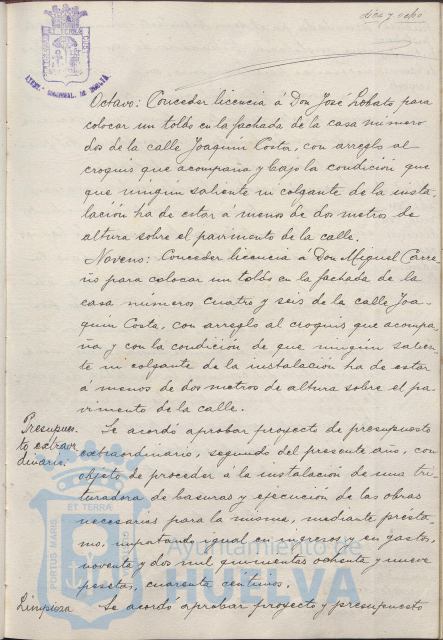 diez y ocho
Octavo: Conceder licencia á Don José Lobato para
colocar un toldo en la fachada de la casa número
dos de la calle Joaquin Costa, con arreglo al
croquis que acompaña y bajo la condición que
que ningun saliente ni colgante de la insta-
lación ha de estar á menos de dos metros de
altura sobre el pavimento de la calle.
Noveno: Conceder licencia á Don Miguel Carre-
ño para colocar un toldo en la fachada de la
casa números cuatro y seis de la calle Joa-
quin Costa, con arreglo al croquis que acompa-
ña y con la condición de que ningún salien-
te ni colgante de la instalación ha de estar
á menos de dos metros de altura sobre el pa-
vimento de la calle.
Presupues-
to extraor
dinario.
Se acordó aprobar proyecto de presupuesto
extraordinario, segundo del presente año, con
objeto de proceder á la instalación de una tri-
turadora de basuras y ejecución de las obras
necesarias para la misma, mediante présta-
mo, importando igual en ingresos y en gastos,
noventa y dos mil quinientas ochenta y nueve
pesetas, cuarenta centimos.
Limpieza
Se acordó aprobar proyecto y presupuesto
PORTUS MARIS
ET TERRÆ
Ayuntamiento de
HUELVA